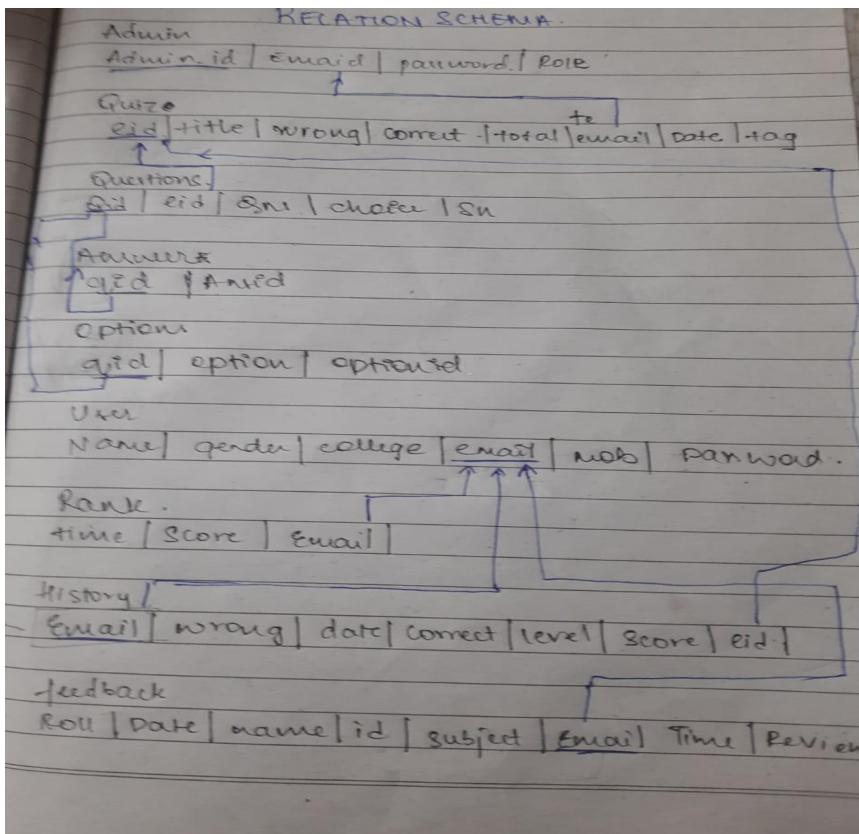 RELATION SCHEMA.
Admin
Admin_id | Emaid | password. | Role
Quize
te
eid | title | wrong | correct | total | email | Date | tag
Questions.
Qid | eid | Qns | choice | Sn
Answer
qid | Ansid
Options
qid | option | optionid
User
Name | gender | college | email | Mob | password.
Rank.
time | Score | Email |
History
Email | wrong | date | correct | level | score | eid |
feedback
Roll | Date | name | id | subject | Email Time | Review